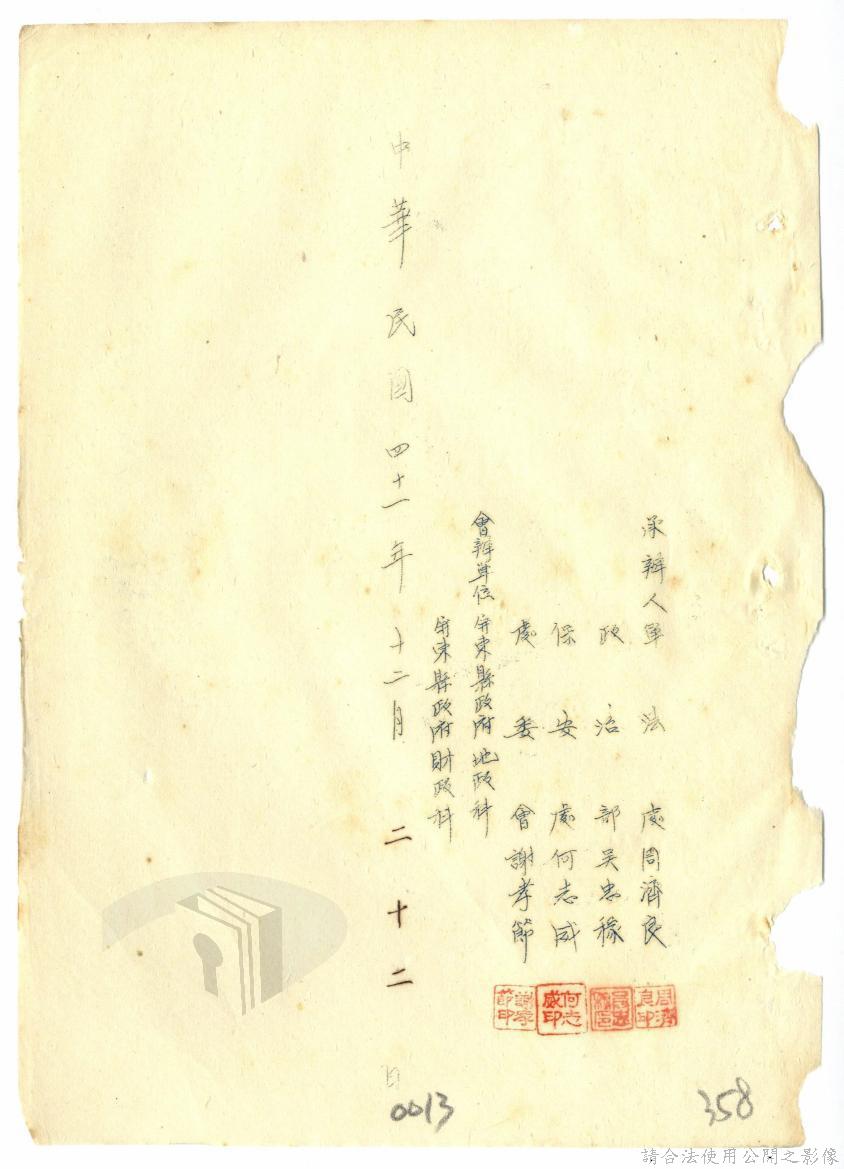 承辦人軍法處周濟良
政治部吳忠稼
保安處何志威
處委會謝孝節
會辦單位屏東縣政府地政科
屏東縣政府財政科
中華民國四十一年十二月二十二日
周濟良印
何志威印
0013
358
請合法使用公開之影像